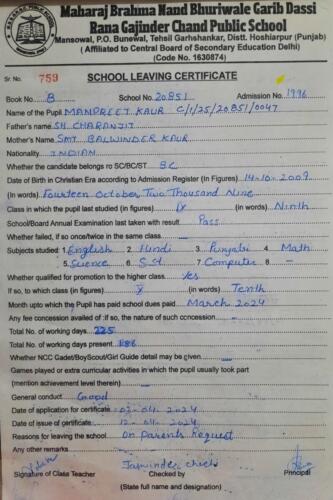 Maharaj Brahma Nand Bhuriwale Garib Dassi
Rana Gajinder Chand Public School
Mansowal, P.O. Bunewal, Tehsil Garhshankar, Distt. Hoshiarpur (Punjab)
( Affiliated to Central Board of Secondary Education Delhi)
(Code No. 1630874)
Sr. No. 759 SCHOOL LEAVING CERTIFICATE
Book No. 8 School No. 20851 Admission No. 1996
Name of the Pupil MANPREET KAUR C/1/25/20851/0047
Father's name SH. CHARANJIT
Mother's Name SMT. BALWINDER KAUR
Nationality INDIAN
Whether the candidate belongs ro SC/BC/ST BC
Date of Birth in Christian Era according to Admission Register (In Figures) 14-10-2009
(In words) Fourteen October Two Thousand Nine
Class in which the pupil last studied (in figures) IX (In words) Ninth
School/Board Annual Examination last taken with result Pass
Whether failed, if so once/twice in the same class
Subjects studied 1. English 2. Hindi 3. Punjabi 4. Math
5. Science 6. S.St. 7. Computer 8. -
Whether qualified for promotion to the higher class yes
If so, to which class (in figures) X (in words) Tenth
Month upto which the Pupil has paid school dues paid March 2024
Any fee concession availed of :if so, the nature of such concession -
Total No. of working days 225
Total No. of working days present 186
Whether NCC Cadet/BoyScout/Girl Guide detail may be given
Games played or extra curricular activities in which the pupil usually took part
(mention achievement level therein)
General conduct Good
Date of application for certificate 03-04-2024
Date of issue of certificate 12-04-2024
Reasons for leaving the school On parents Request
Any other remarks
Signature of Class Teacher Checked by Principal
(State full name and designation)